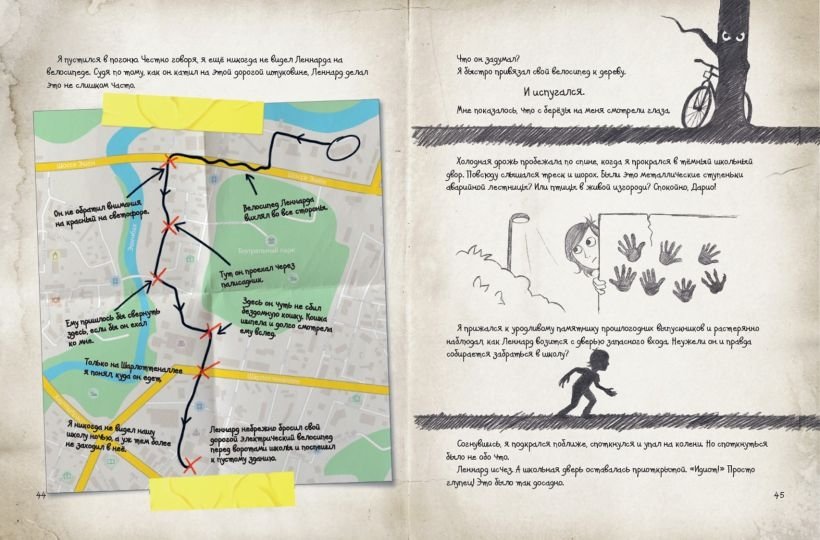 Я пустился в погоню. Честно говоря, я ещё никогда не видел Леннарда на
велосипеде. Судя по тому, как он катил на этой дорогой штуковине, Леннард делал
это не слишком часто.
Шоссе Эшен
Шоссе Эшен
Он не обратил внимания
на красный на светофоре.
Велосипед Леннарда
вихлял во все стороны.
Эшенбах
Театральный парк
Тут он проехал через
палисадник.
Здесь он чуть не сбил
бездомную кошку. Кошка
шипела и долго смотрела
ему вслед.
Ему пришлось бы свернуть
здесь, если бы он ехал
ко мне.
Только на Шарлоттеналлее
я понял, куда он едет.
Я никогда не видел нашу
школу ночью, а уж тем более
не заходил в неё.
Леннард небрежно бросил свой
дорогой электрический велосипед
перед воротами школы и поспешил
к пустому зданию.
44
Что он задумал?
Я быстро привязал свой велосипед к дереву.
И испугался.
Мне показалось, что с берёзы на меня смотрели глаза.
Холодная дрожь пробежала по спине, когда я прокрался в тёмный школьный
двор. Повсюду слышался треск и шорох. Были это металлические ступеньки
аварийной лестницы? Или птицы в живой изгороди? Спокойно, Дарио!
Я прижался к уродливому памятнику прошлогодних выпускников и растерянно
наблюдал, как Леннард возится с дверью запасного входа. Неужели он и правда
собирается забраться в школу?
Согнувшись, я подкрался поближе, споткнулся и упал на колени. Но споткнуться
было не обо что.
Леннард исчез. А школьная дверь оставалась приоткрытой. «Идиот!» Просто
глупец! Это было так досадно.
45